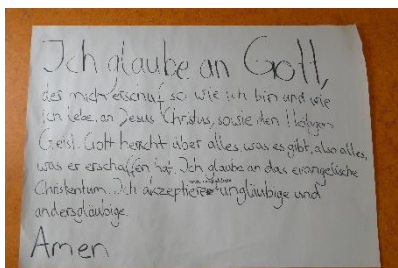 Ich glaube an Gott,
der mich erschuf so wie ich bin und wie
ich lebe, an Jesus Christus, sowie den Heiligen
Geist. Gott herrscht über alles, was es gibt, also alles,
was er erschaffen hat. Ich glaube an das evangelische
Christentum. Ich akzeptiere ungläubige und
andersgläubige.
Amen